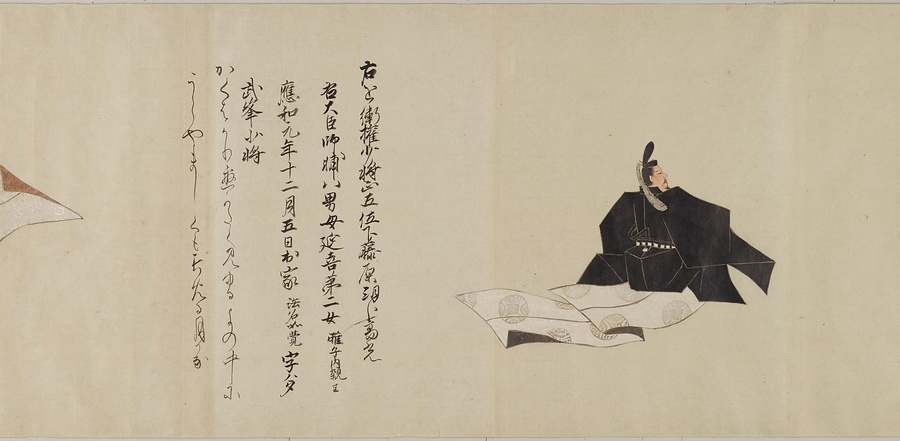 右近衛権少将正五位下藤原朝臣高光
右大臣師輔八男母延喜第二女 雅子内親王
應和元年十二月五日出家 法名如覚 字多
武峯少将
かくはかり経かたく見ゆるよの中に
うらやましくもすめる月かな